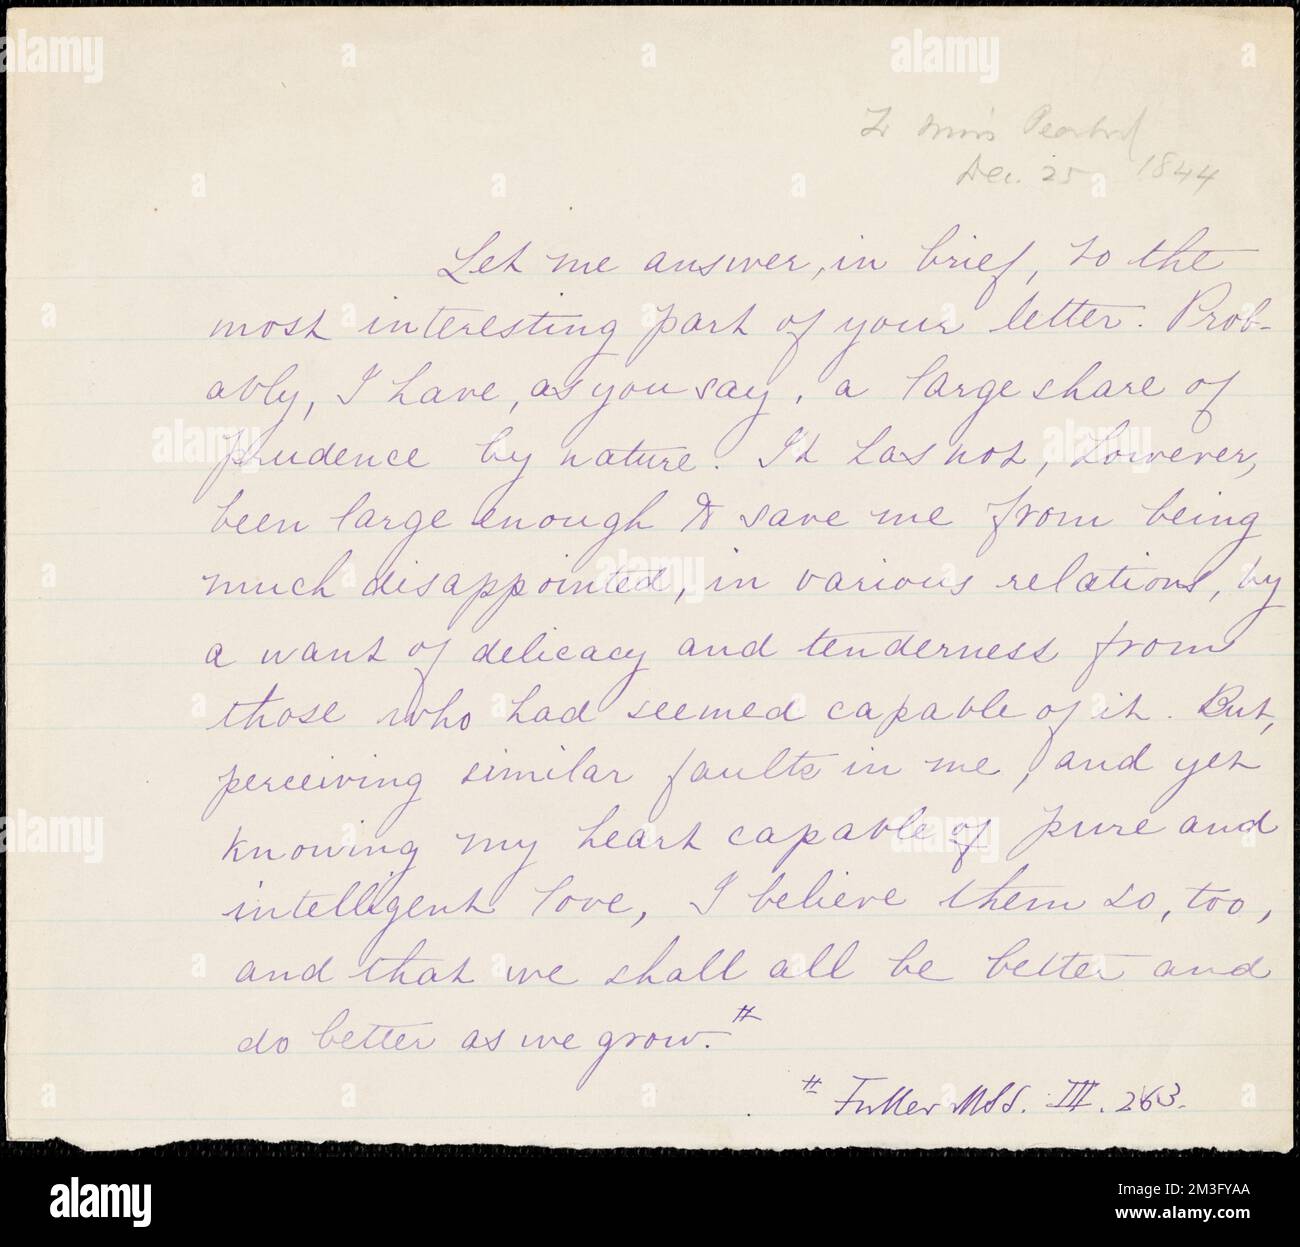 To Miss Peabody
Dec. 25 1844
Let me answer, in brief, to the
most interesting part of your letter. Prob-
ably, I have, as you say, a large share of
prudence by nature. It has not, however,
been large enough to save me from being
much disappointed, in various relations, by
a want of delicacy and tenderness from
those who had seemed capable of it. But,
perceiving similar faults in me, and yet
knowing my heart capable of pure and
intelligent love, I believe them so, too,
and that we shall all be better and
do better as we grow.#
# Fuller MSS. III. 263.
alamy
Image ID: 2M3FYAA
www.alamy.com